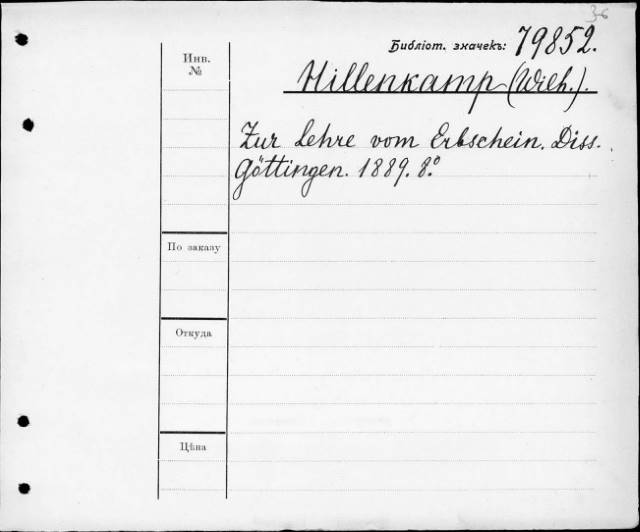 36
Библіот. значекъ: 79852.
Инв.
№
Hillenkamp (Wilh.).
Zur Lehre vom Erbschein. Diss.
Göttingen. 1889. 8.°
По заказу
Откуда
Цѣна